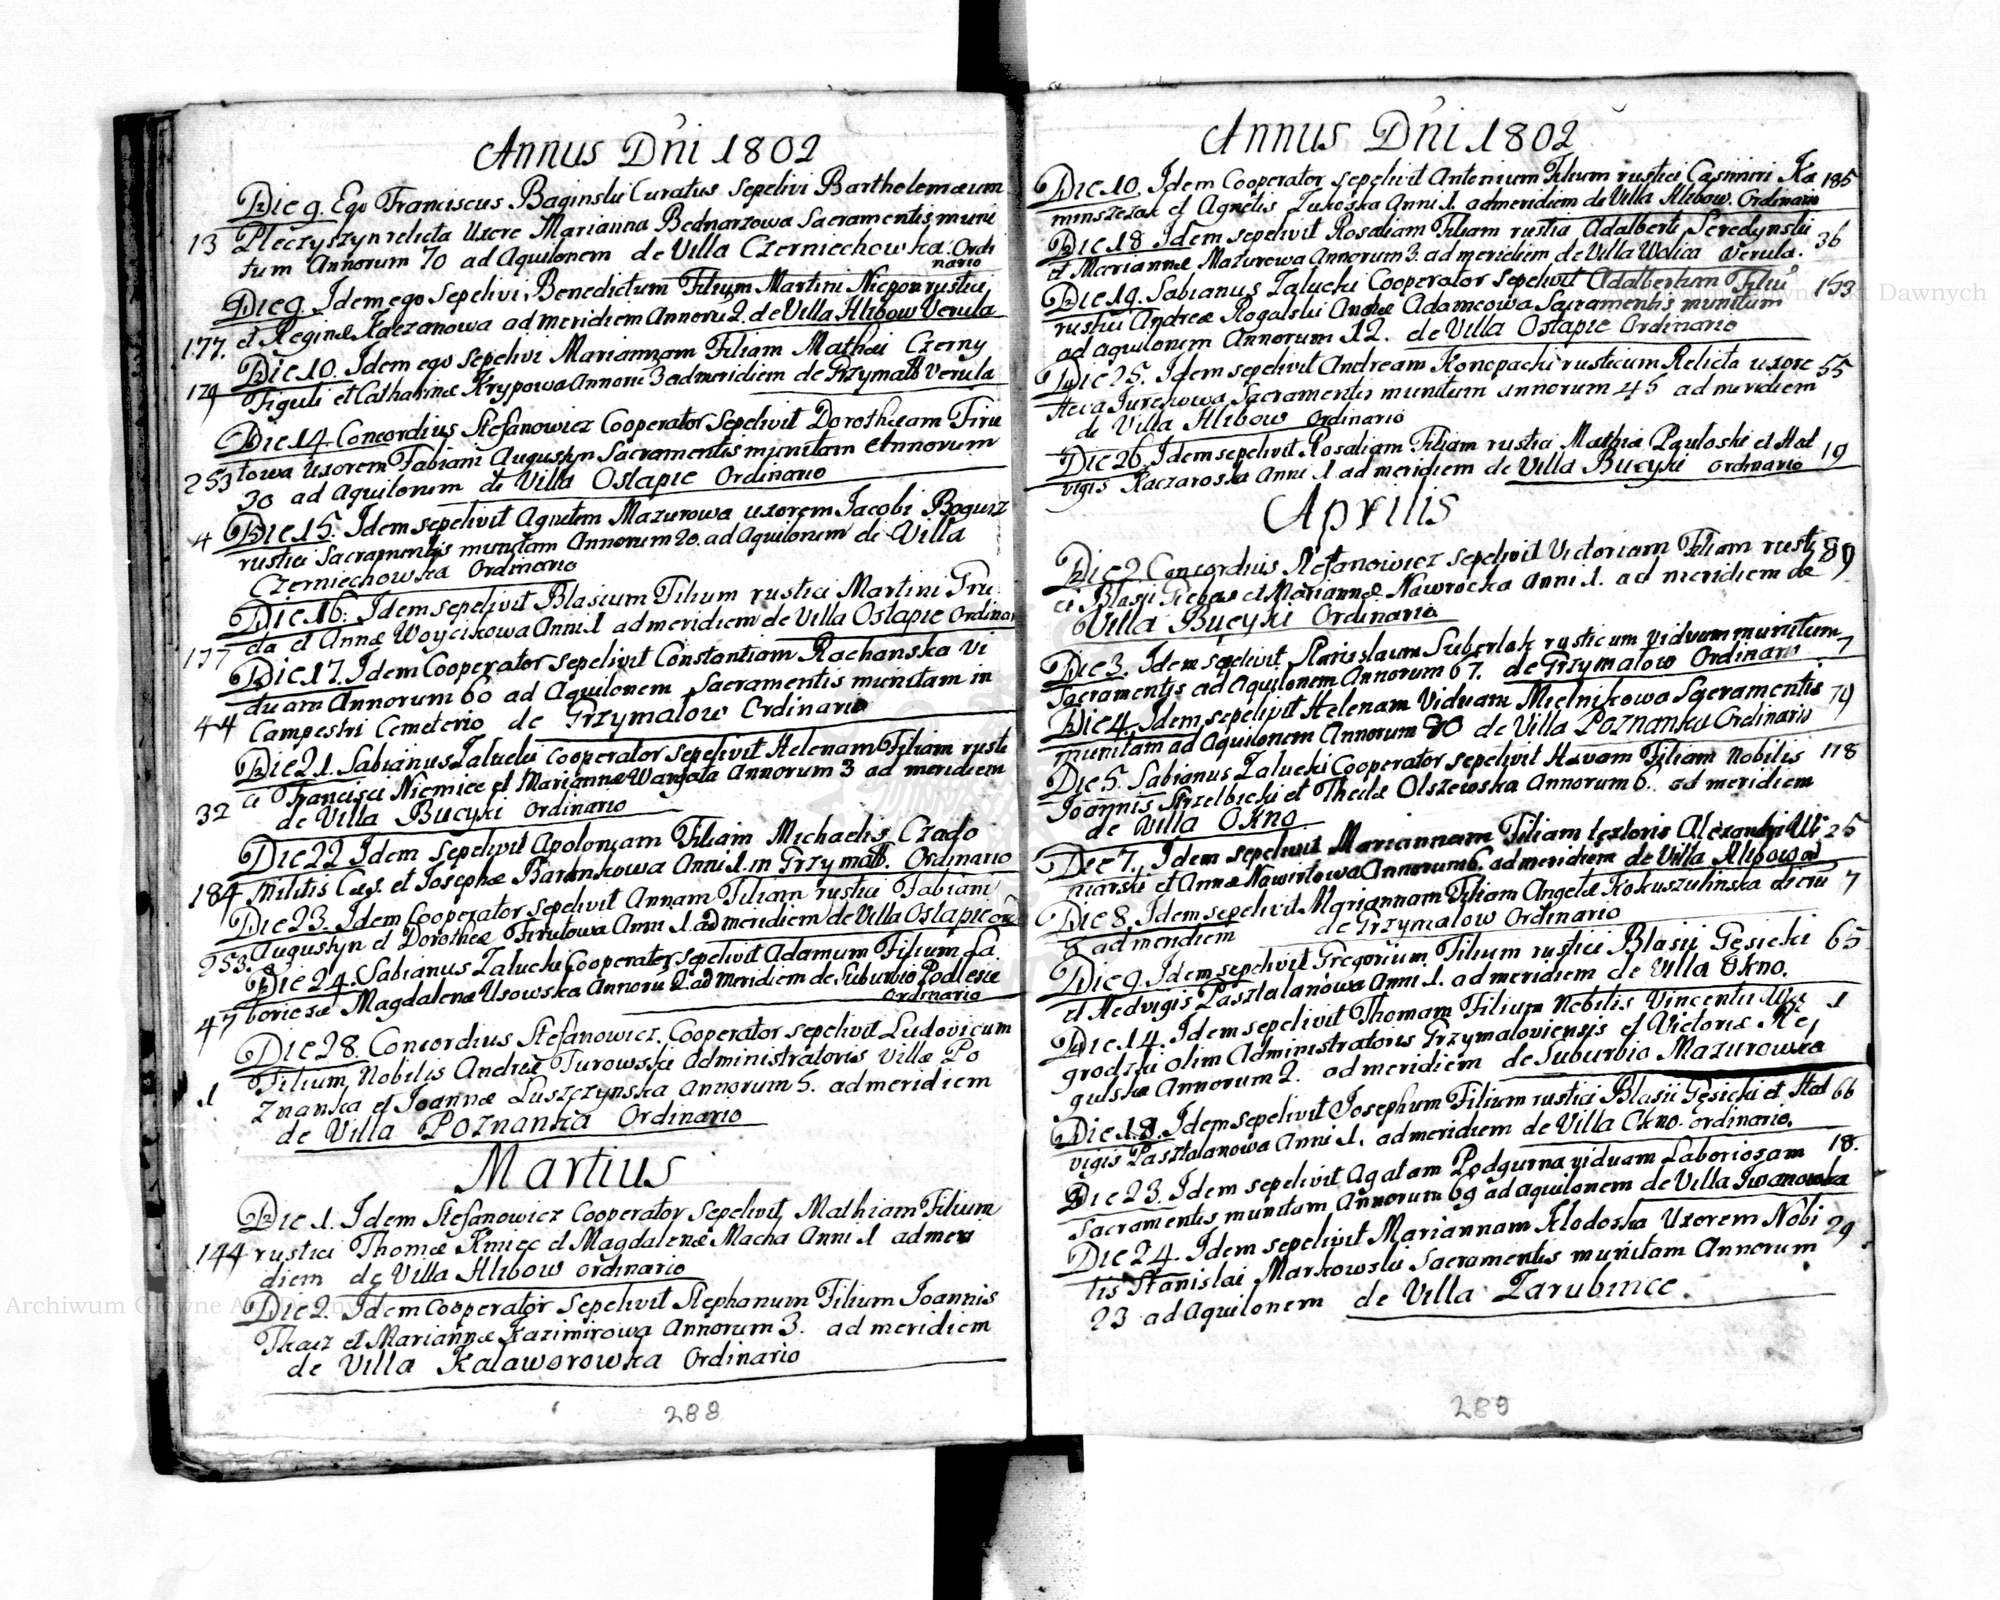 Annus Dñi 1802
Die 9. Ego Franciscus Baginski Curatus Sepelivi Bartholemæum
13 Pleczyszyn relicta Uxore Marianna Bednarzowa Sacramentis muni
tum Annorum 70 ad Aquilonem de Villa Czerniechowka. Ordi
nario
Die 9. Idem ego Sepelivi Benedictum Filium Martini Niepon rustici,
177. et Reginæ Kaczanowa ad meridiem Annorū 2. de Villa Hlibow Verula
Die 10. Idem ego Sepelivi Mariannam Filiam Mathei Czerny
179 Figuli et Catharinæ Krypowa Annorū 3 ad meridiem de Grzymall Verula
Die 14. Concordius Stefanowicz Cooperator Sepelivit Dorotheam Firu
253 towa Uxorem Fabiani Augustyn Sacramentis munitam Annorum
30 ad Aquilonem de Villa Ostapie Ordinario
4 Die 15. Idem sepelivit Agnetem Mazurowa uxorem Jacobi Bogusz
rustici Sacramentis munitam Annorum 20. ad Aquilonem de Villa
Czerniechowka Ordinario
Die 16: Idem sepelivit Blasium Filium rustici Martini Gru
177 da et Annæ Woycikowa Anni 1 ad meridiem de Villa Ostapie Ordinar
Die 17. Idem Cooperator Sepelivit Constantiam Rachanska Vi
duam Annorum 60 ad Aquilonem Sacramentis munitam in
44 Campestri Cemeterio de Grzymalow Ordinario
Die 21. Sabianus Zalucki cooperator sepelivit Helenam Filiam rusti
32 ci Francisci Niemiec et Mariannæ Annorum 3 ad meridiem
de Villa Bucyki Ordinario
Die 22 Idem Sepelivit Apoloniam Filiam Michaelis Czado
184 militis Cæs. et Josephæ Barankowa Anni 1. in Grzymall. Ordinario
Die 23. Idem Cooperator sepelivit Annam Filiam rustici Fabiani
253. Augustyn et Dorotheæ Firutowa Anni 1. ad meridiem de Villa Ostapie
Die 24. Sabianus Zalucki Cooperator Sepelivit Adamum Filium La
47 boriosæ Magdalenæ Usowska Annorū 2 ad meridiem de Suburbio Podlesie
Ordinario
Die 28. Concordius Stefanowicz Cooperator sepelivit Ludovicum
Filium Nobilis Andreæ Turowski Administratoris Villæ Po
1 znanka et Joannæ Luszczynska Annorum 5. ad meridiem
de Villa Poznanka Ordinario
Martius
Die 1. Idem Stefanowicz Cooperator Sepelivit Mathiam Filium
144 rustici Thomæ Kmiec et Magdalenæ Macha Anni 1 ad meri
diem de Villa Hlibow ordinario
Die 2. Idem Cooperator Sepelivit Stephanum Filium Joannis
Tkacz et Mariannæ Kazimirowa Annorum 3. ad meridiem
de Villa Kalaworowka Ordinario
288
Annus Dñi 1802
Die 10. Idem Cooperator sepelivit Antonium Filium rustici Casimiri Ka 185
minszczak et Agnetis Zukoska Anni 1. ad meridiem de Villa Hlibow. Ordinario
Die 18 Idem sepelivit Rosaliam Filiam rustici Adalberti Seredynski 36
et Mariannæ Mazurowa Annorum 3. ad meridiem de Villa Wolica Verula.
Die 19. Sabianus Zalucki Cooperator Sepelivit Adalbertum Filiū 153
rustici Andreæ Rogalski Adamcowa Sacramentis munitum
ad aquilonem Annorum 12. de Villa Ostapie Ordinario
Die 25. Idem sepelivit Andream Konopacki rusticum Relicta uxore 55
Jurchowa Sacramentis munitum annorum 45 ad meridiem
de Villa Hlibow ordinario
Die 26 Idem sepelivit Rosaliam Filiam rustici Mathiæ Pauloski et Hed 19
vigis Kaczaroska Anni 1 ad meridiem de Villa Bucyki ordinario
Aprilis
Die 2 Concordius Stefanowicz sepelivit Victoriam Filiam rusti 89
ci Blasii et Mariannæ Nawrocka Anni 1. ad meridiem de
Villa Bucyki Ordinario
Die 3. Idem sepelivit Stanislaum Suberlak rusticum viduum munitum 7
Sacramentis ad Aquilonem Annorum 67. de Grzymalow Ordinario
Die 4. Idem sepelivit Helenam Viduam Mielnikowa Sacramentis 79
munitam ad Aquilonem Annorum 70 de Villa Poznanka Ordinario
Die 5. Sabianus Zalucki Cooperator sepelivit Havam Filiam Nobilis 118
Joannis Strzelbicki et Theclæ Olszewska Annorum 6. ad meridiem
de Villa Okno
Die 7. Idem sepelivit Mariannam Filiam textoris Alexandri 25
niarski et Annæ Nawirlowa Annorum 6. ad meridiem de Villa Hlibow
Die 8. Idem sepelivit Mariannam Filiam Angelæ Kokuszulinska dierū 7
8 ad meridiem de Grzymalow Ordinario
Die 9. Idem sepelivit Gregorium Filium rustici Blasii Gęsicki 65
et Hedvigis Pasztalanowa Anni 1. ad meridiem de Villa Okno.
Die 14. Idem sepelivit Thomam Filium Nobilis Vincentii Wy 1
grodzki olim Administratoris Grzymaloviensis et Victoriæ Re
gulska Annorum 2. ad meridiem de Suburbio Mazurowka
Die 18. Idem sepelivit Josephum Filium rustici Blasii Gęsicki et Hed 66
vigis Pasztalanowa Anni 1. ad meridiem de Villa Okno. ordinario.
Die 23. Idem sepelivit Agatam Podgurna viduam Laboriosam 18.
Sacramentis munitam Annorum 69 ad aquilonem de Villa Iwanowka
Die 24. Idem sepelivit Mariannam Klodoska Uxorem Nobi 29
lis Stanislai Markowski Sacramentis munitam Annorum
23 ad Aquilonem de Villa Zarubince.
289